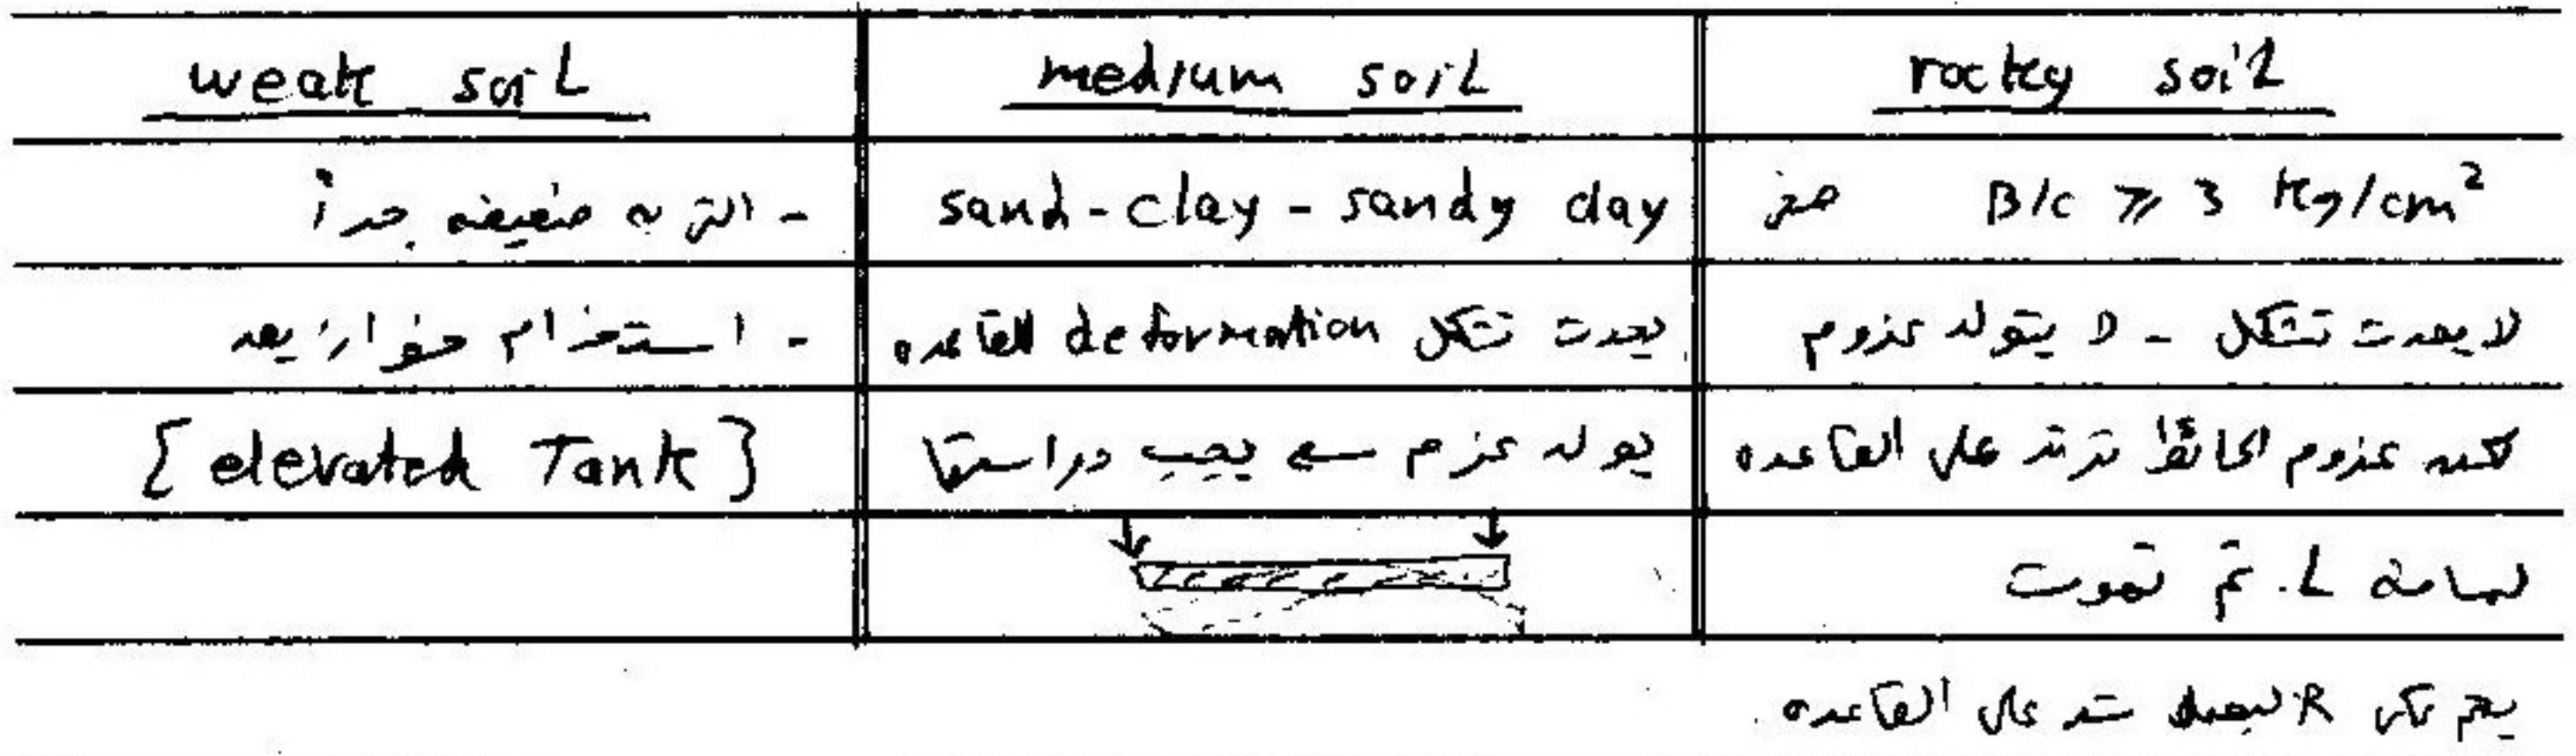 weak soil medium soil rocky soil
- التربه ضعيفه جداً sand - clay - sandy clay B/c ≥ 3 Kg/cm²
- استخدام خوازيق يحدث تشكل deformation للقاعده لا يحدث تشكل - لا يتولد عزوم
[elevated Tank} يولد عزم يجب دراستها لكن عزوم الحائط ترتد على القاعده
لمسافة L. ثم تموت
على القاعده